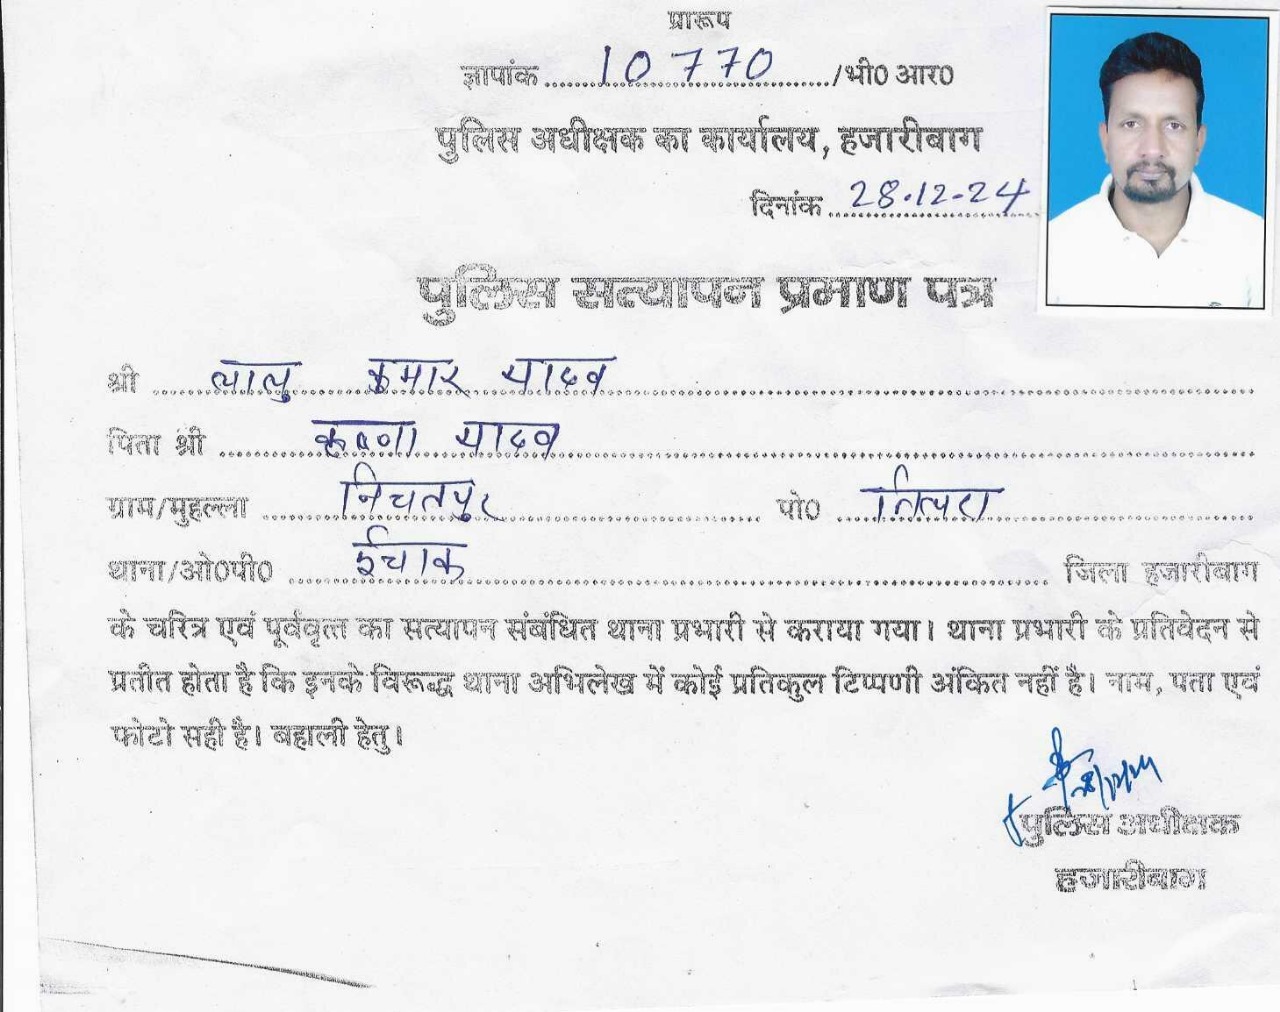 प्रारूप
ज्ञापांक 10770 /भी0 आर0
पुलिस अधीक्षक का कार्यालय, हजारीबाग
दिनांक 28.12-24
पुलिस सत्यापन प्रमाण पत्र
श्री लालु कुमार यादव
पिता श्री कृष्णा यादव
ग्राम/मुहल्ला पो0
थाना/ओ0पी0 ईचाक जिला हजारीबाग
के चरित्र एवं पूर्ववृत्त का सत्यापन संबंधित थाना प्रभारी से कराया गया। थाना प्रभारी के प्रतिवेदन से
प्रतीत होता है कि इनके विरूद्ध थाना अभिलेख में कोई प्रतिकुल टिप्पणी अंकित नहीं है। नाम, पता एवं
फोटो सही है। बहाली हेतु।
पुलिस अधीक्षक
हजारीबाग